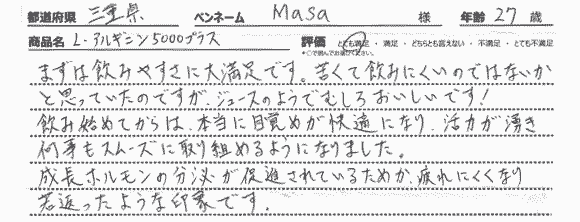 都道府県 三重県 ペンネーム Masa 様 年齢 27 歳
商品名 L-アルギニン5000プラス 評価 とても満足 ・ 満足 ・ どちらとも言えない ・ 不満足 ・ とても不満足
*○で囲んでお選びください。
まずは飲みやすさに大満足です。苦くて飲みにくいのではないか
と思っていたのですが、ジュースのようでむしろおいしいです!
飲み始めてからは、本当に目覚めが快適になり、活力が湧き
何事もスムーズに取り組めるようになりました。
成長ホルモンの分泌が促進されているためか、疲れにくくなり
若返ったような印象です。